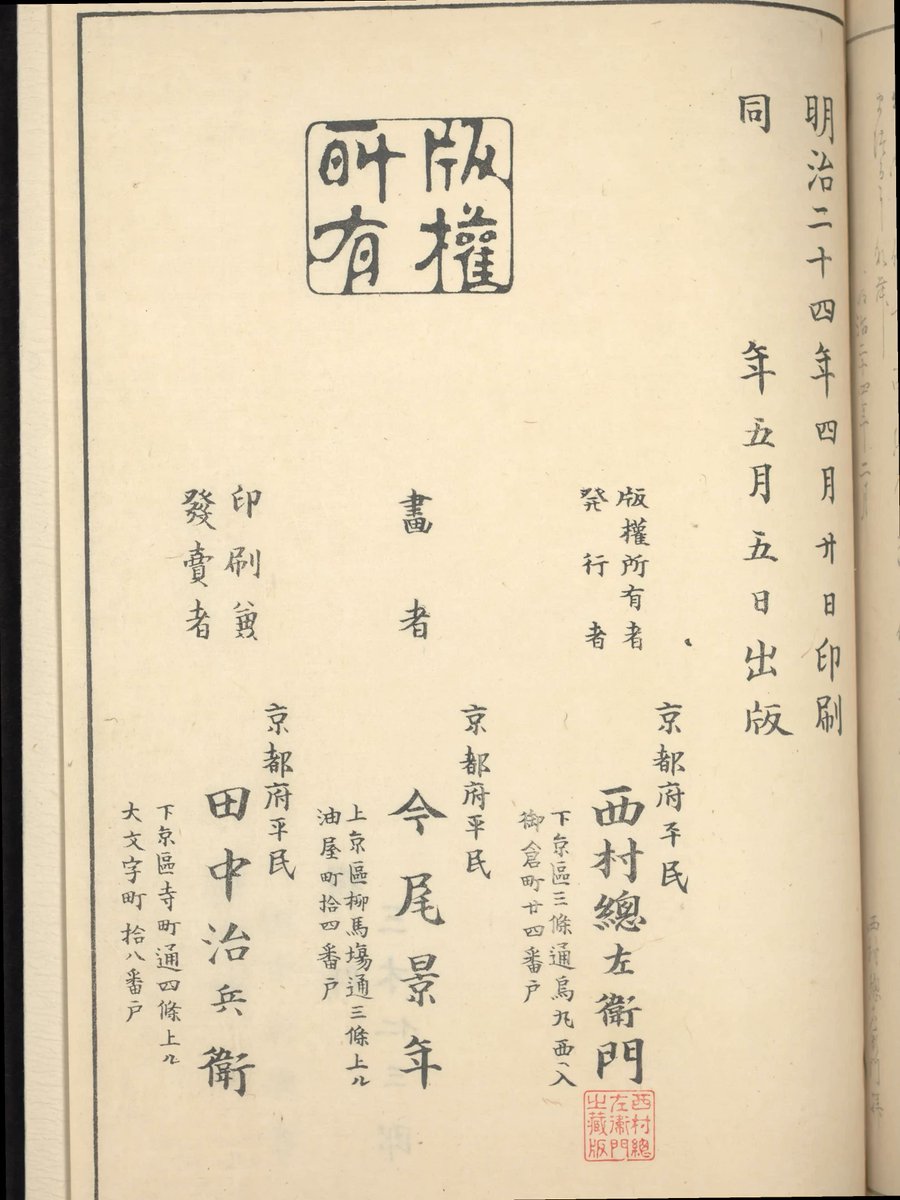 明治二十四年四月廿日印刷
同年五月五日出版
版權所有
版權所有者
発行者
京都府平民
下京區三條通烏丸西入
御倉町廿四番戸
西村總左衛門
西村總左衛門之藏版
畫者
京都府平民
上京區柳馬塲通三條上ル
油屋町拾四番戸
今尾景年
印刷兼
發賣者
京都府平民
下京區寺町通四條上ル
大文字町拾八番戸
田中治兵衛